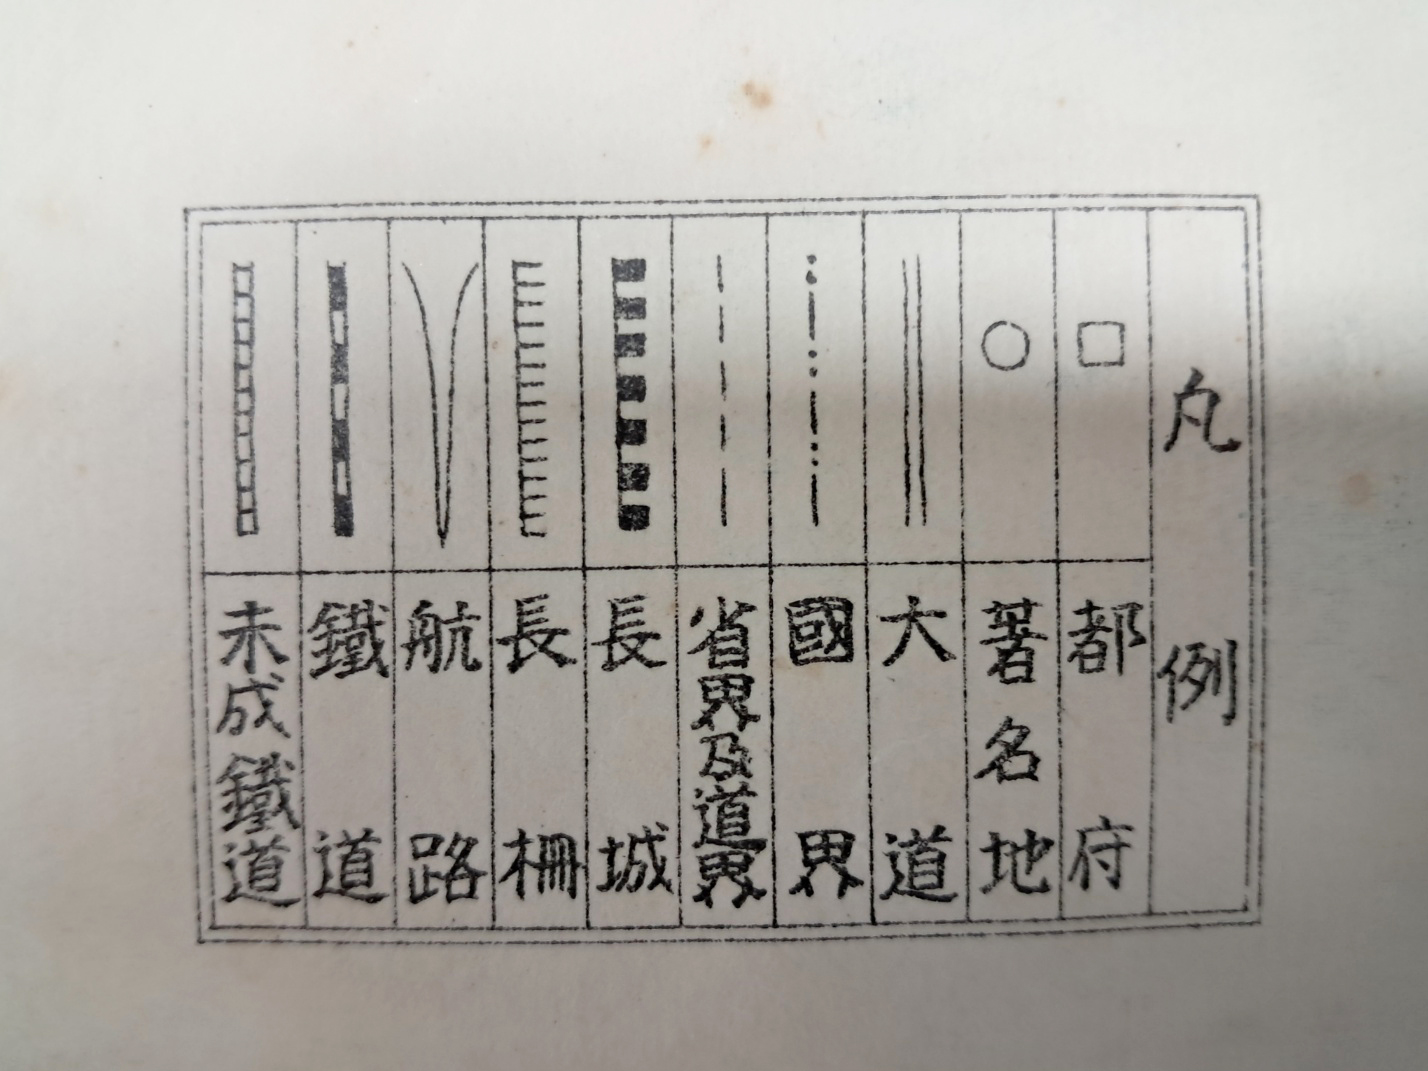 凡例
都府
著名地
大道
國界
省界及道界
長城
長柵
航路
鐵道
未成鐵道